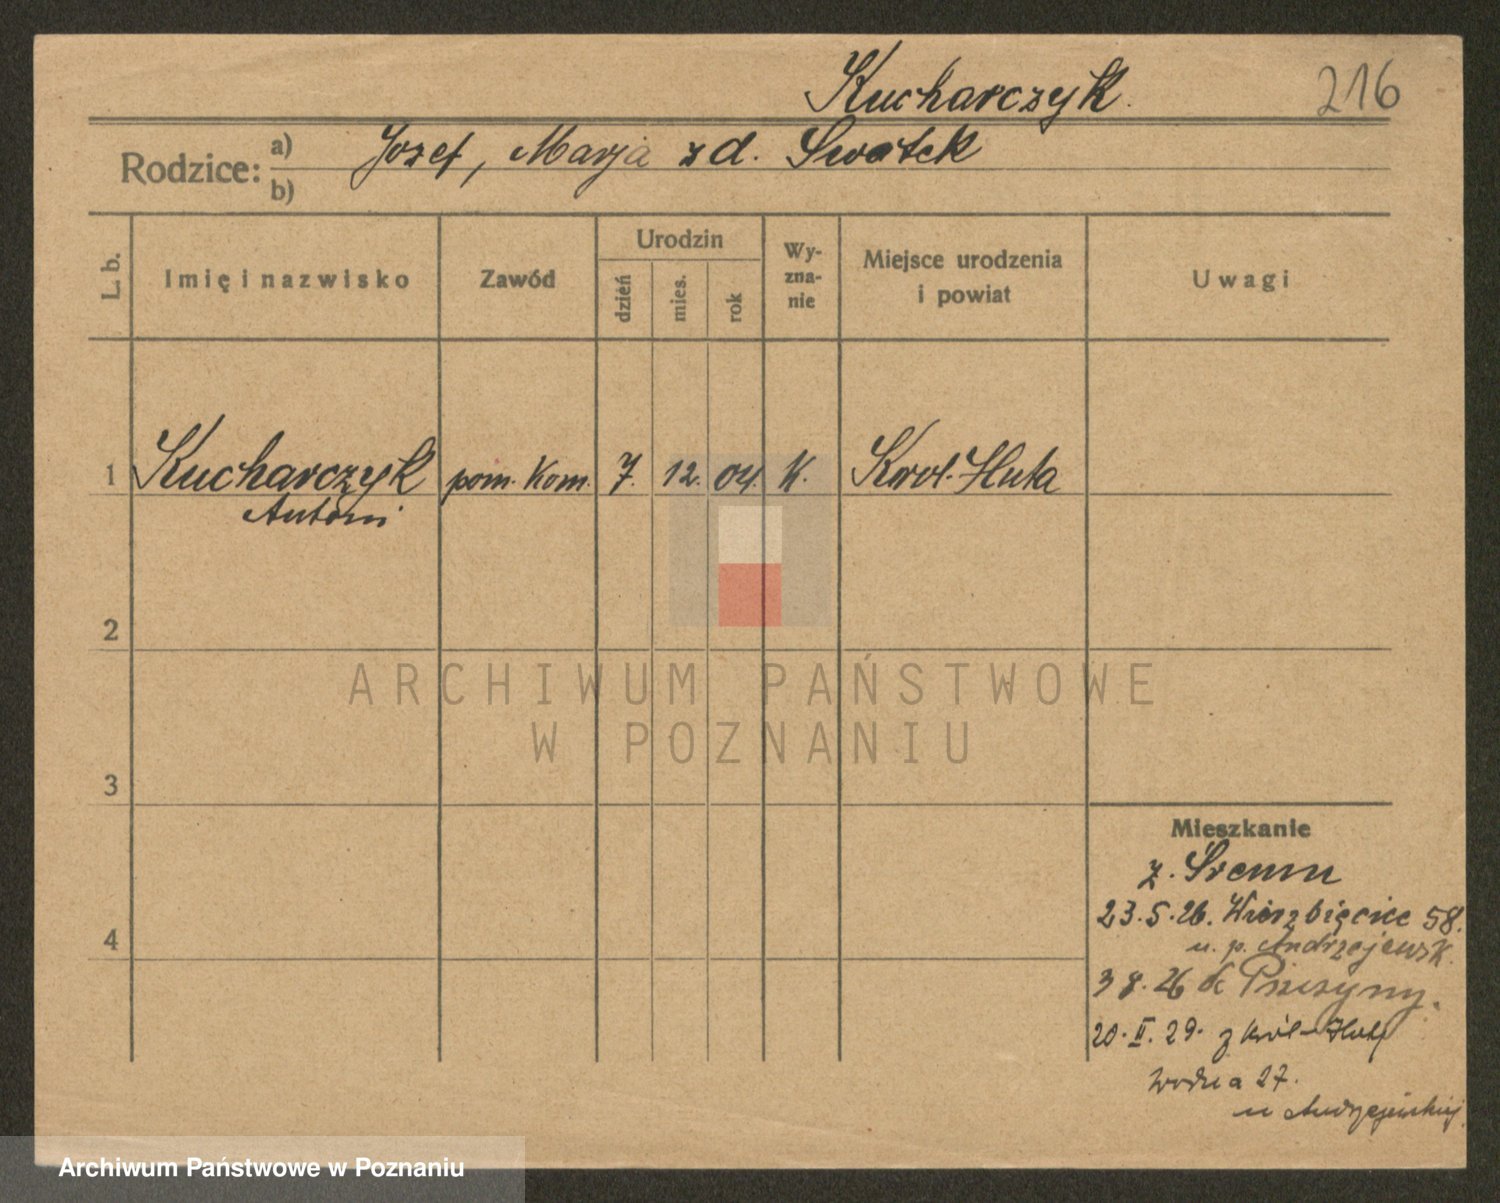 Kucharczyk.
216
Rodzice: a) Jozef, Marja z d. Swatek
b)
L. b.
Imię i nazwisko
Zawód
Urodzin
dzień
mies.
rok
Wy-
zna-
nie
Miejsce urodzenia
i powiat
Uwagi
1 Kucharczyk pom. Kom. 7. 12. 04. K. Krol. Huta
Antoni
2
3
4
Mieszkanie
z. Śremu
23.5.26. Wierzbięcice 58.
u. p. Andrzejewsk.
3 8.26 Pszczyny.
20.II.29. z Król-Huty
Wodna 27.
u Andrzejewskiej
ARCHIWUM PAŃSTWOWE
W POZNANIU
Archiwum Państwowe w Poznaniu